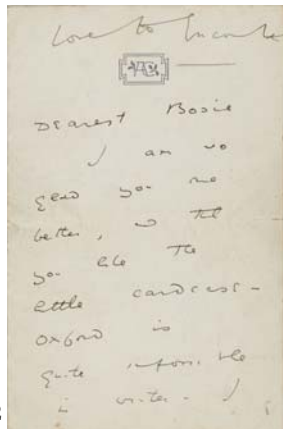 Love to Encombe
Dearest Bosie
I am so
glad you are
better, and that
you like the
little cardcase –
Oxford is
quite impossible
in winter. I